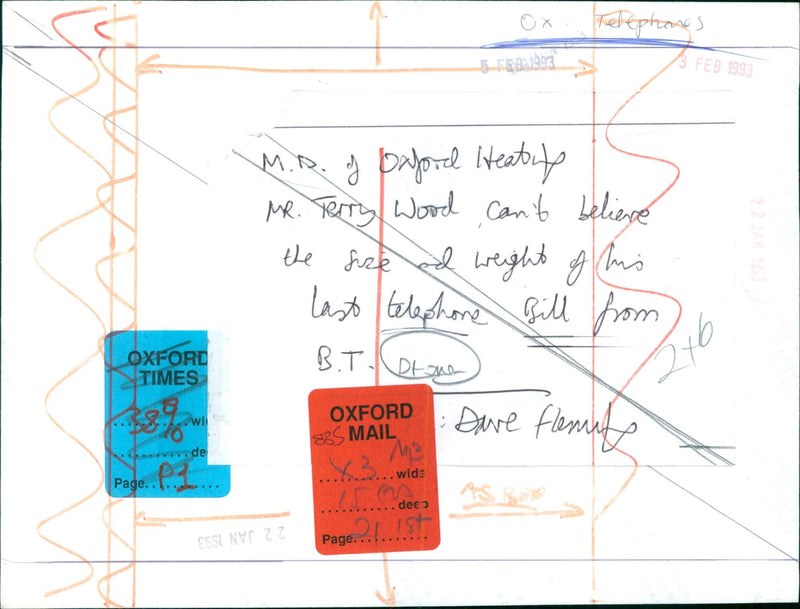 Ox. Telephones
FEB 1993
3 FEB 1993
M.D. of Oxford Heating
MR. Terry Wood can't believe
the size and weight of his
last telephone Bill from
B.T.
: Dave Fleming
2+6
22 JAN 1993
OXFORD
TIMES
389
10
wi
de
Page P1
OXFORD
MAIL
885
x3 wide
15 deep
Page 21 1st
22 JAN 1993